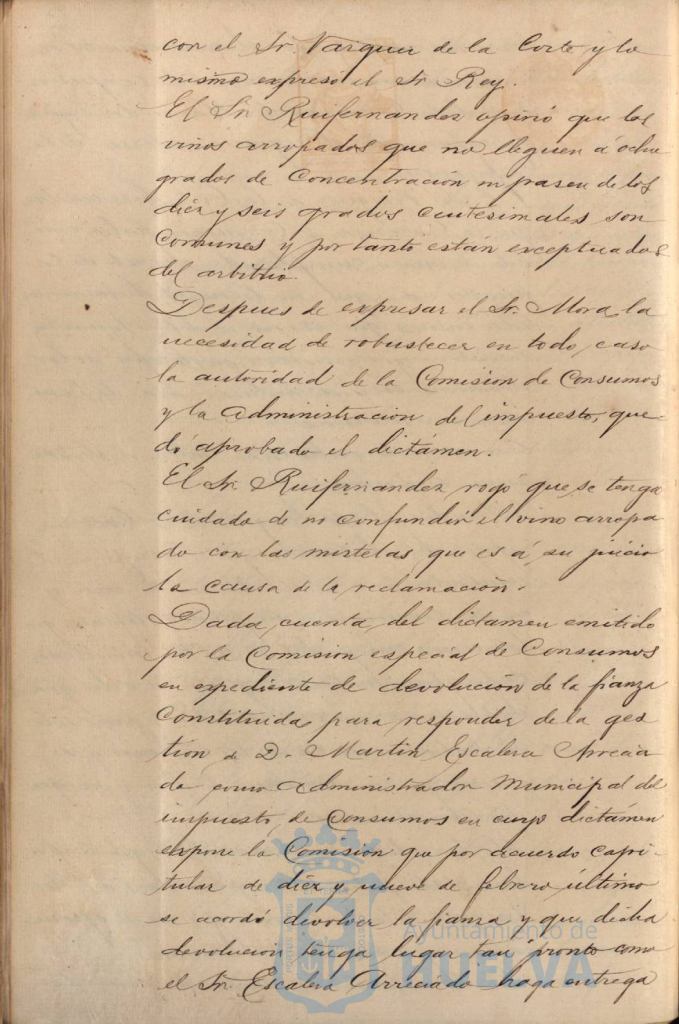 con el Sr. Vazquez de la Corte y lo
mismo expresó el Sr Rey.
El Sr. Ruifernandez opinó que los
vinos arropados que no lleguen á ocho
grados de Concentración ni pasen de los
diéz y seis grados centesimales son
Comunes y por tanto están exceptuados
del arbitrio.
Despues de expresar el Sr. Mora, la
necesidad de robustecer en todo, caso
la autoridad de la Comision de Consumos
y la administracion del impuesto, que-
dó aprobado el dictámen.
El Sr. Ruifernandez, rogó que, se tenga
cuidado de no confundir el vino arropa
do con las mistelas, que es á, su juicio
la causa de la reclamación.
Dada, cuenta, del dictamen emitido
por la Comision especial de Consumos
en expediente de devolución de la fianza
Constituida, para responder de la ges
tion de D. Martin Escalera Arrecia
do como administrador Municipal del
impuesto, de Consumos en cuyo dictámen
expone la Comisión que por acuerdo capi-
tular de diéz y nueve de febrero último
se acordó devolver la fianza y que dicha
devolucion tenga lugar tan pronto como
el Sr. Escalera Arreciado haga entrega
Ayuntamiento de
HUELVA